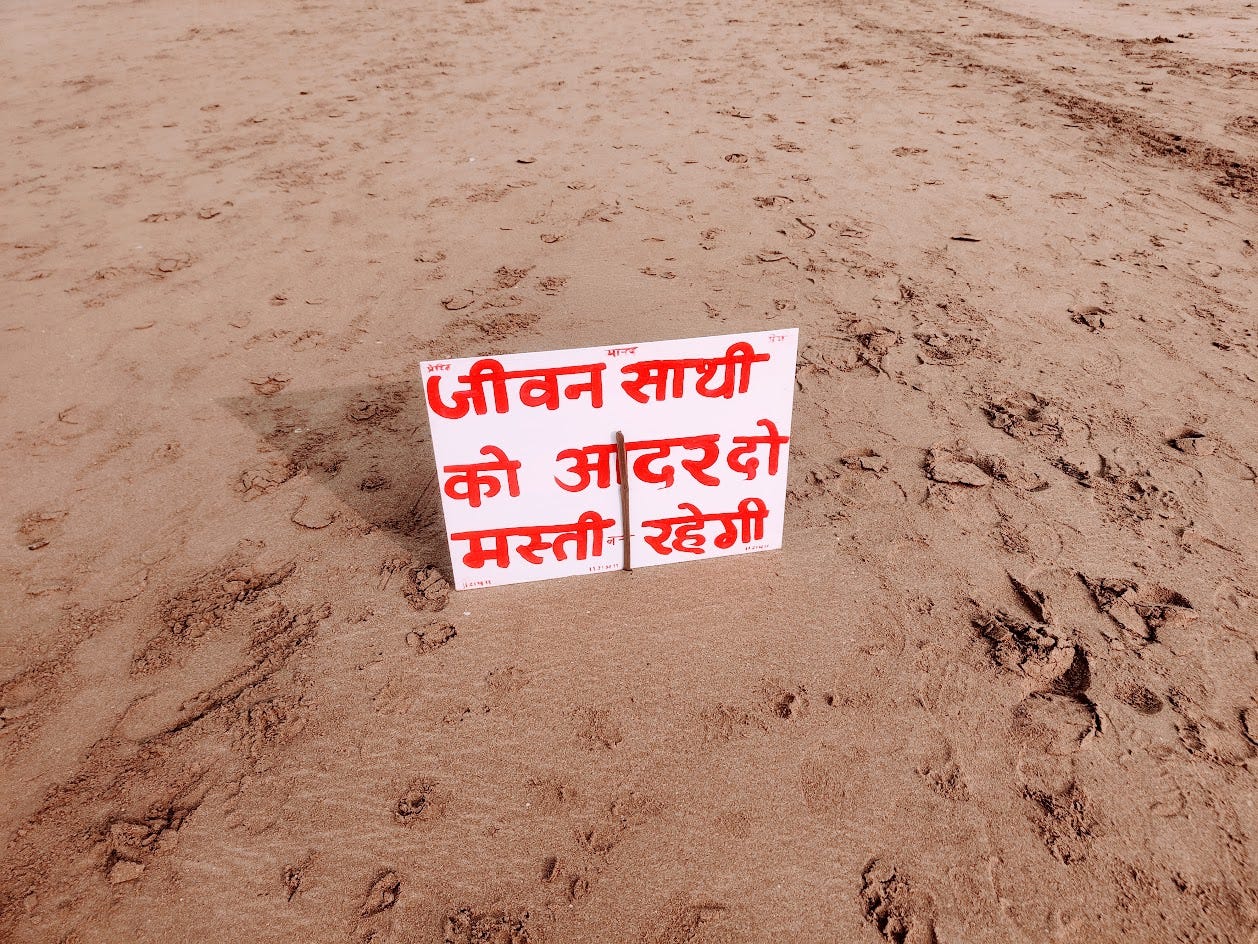 जीवन साथी
को आदर दो
मस्ती रहेगी